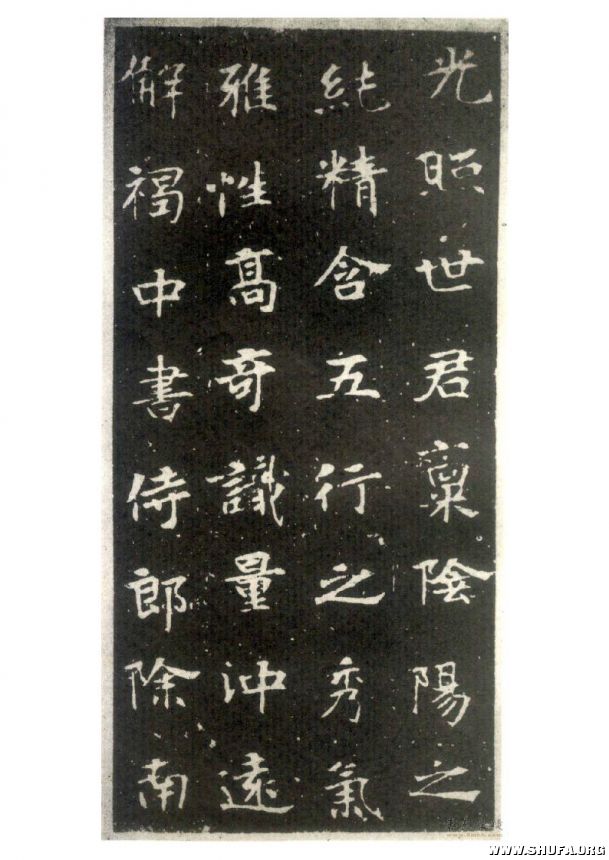 光照世君稟陰陽之
純精含五行之秀氣
雅性高奇識量沖遠
解褐中書侍郎除南
WWW.SHUFA.ORG